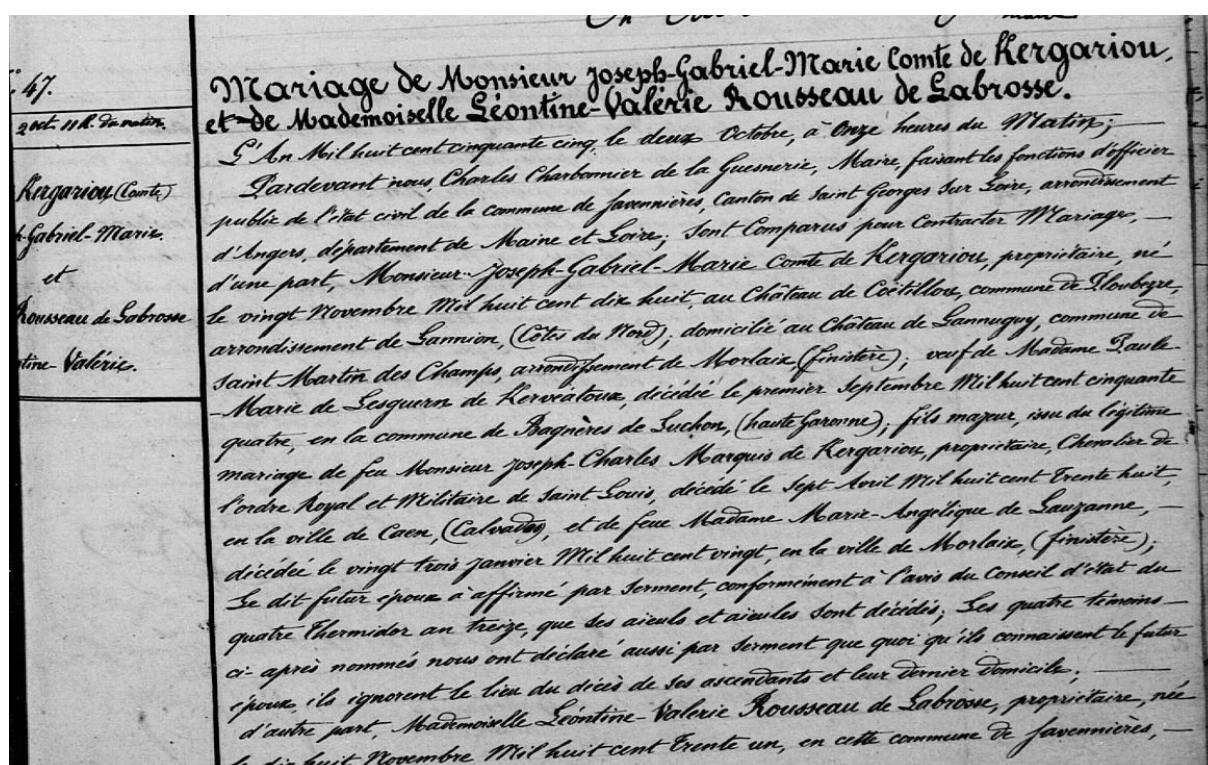 47.
2 oct. 11 h. du matin.
Kergariou (Comte)
Gabriel-Marie.
et
Rousseau de Labrosse
tine-Valérie.
Mariage de Monsieur Joseph-Gabriel-Marie Comte de Kergariou,
et de Mademoiselle Léontine-Valérie Rousseau de Labrosse.
L'An Mil huit cent cinquante cinq, le deux Octobre, à Onze heures du Matin;
Pardevant nous, Charles Charbonnier de la Guesnerie, Maire, faisant les fonctions d'officier
public de l'état civil de la commune de Savennières, Canton de Saint Georges Sur Loire, arrondissement
d'Angers, département de Maine et Loire; Sont Comparus pour Contracter Mariage,
d'une part, Monsieur Joseph-Gabriel-Marie Comte de Kergariou, propriétaire, né
le vingt Novembre Mil huit cent dix huit, au Château de Coëtilloux, commune de Ploubezre,
arrondissement de Lannion, (Côtes du Nord); domicilié au Château de Lannuguy, commune de
Saint Martin des Champs, arrondissement de Morlaix, (finistère); veuf de Madame Paule-
-Marie de Lesguern de Kervéatoux, décédé le premier Septembre Mil huit cent cinquante
quatre, en la commune de Bagnères de Luchon, (haute Garonne); fils majeur, issu du légitime
mariage de feu Monsieur Joseph-Charles Marquis de Kergariou, propriétaire, Chevalier de
l'ordre Royal et Militaire de Saint Louis, décédé le Sept Avril Mil huit cent Trente huit,
en la ville de Caen, (Calvados), et de feue Madame Marie-Angélique de Lauzanne,
décédée le vingt trois janvier Mil huit cent vingt, en la ville de Morlaix, (finistère);
Le dit futur époux a affirmé par Serment, conformément à l'avis du Conseil d'état du
quatre Thermidor an treize, que ses aïeuls et aïeules Sont décédés; Les quatre témoins
ci-après nommés nous ont déclaré aussi par Serment que quoi qu'ils connaissent le futur
époux ils ignorent le lieu du décès de Ses ascendants et leur dernier Domicile;
d'autre part, Mademoiselle Léontine-Valérie Rousseau de Labrosse, propriétaire, née
le dix huit Novembre Mil huit cent Trente un, en cette commune de Savennières,